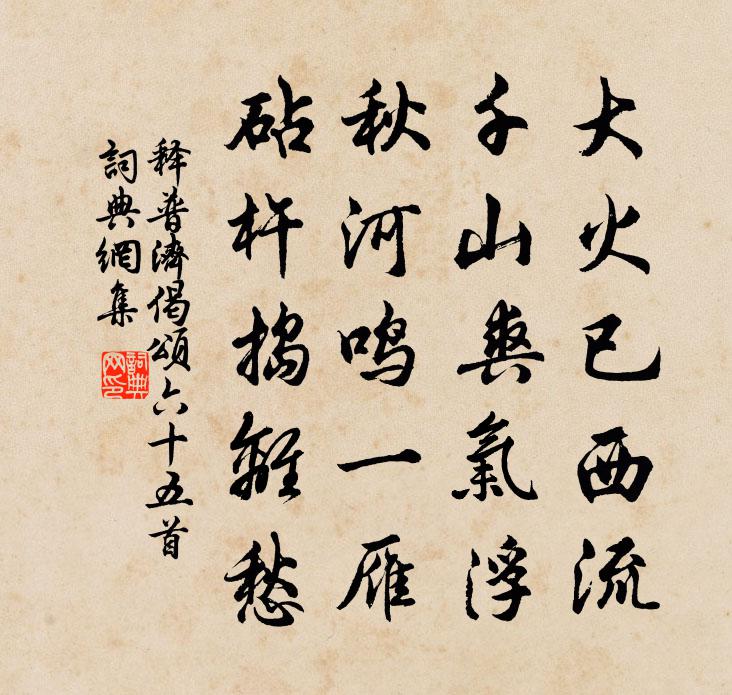 大火已西流
千山爽氣浮
秋河鸣一雁
砧杵搗離愁
释普濟偈頌六十五首
詞典網集
詞典網印